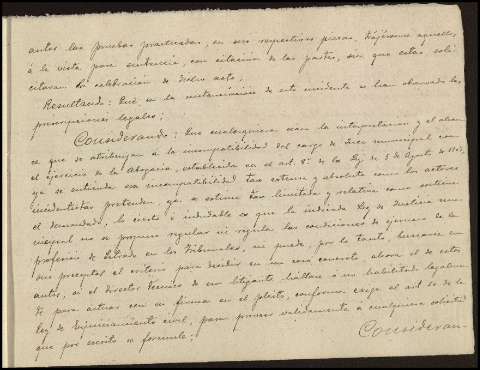 autos las pruebas practicadas, en sus respectivas piezas, trajéronse aquellos
á la vista para sentencia, con citación de las partes, sin que estas soli-
citaran la celebración de dicho acto;
Resultando: Que en la sustanciación de este incidente se han observado las
prescripciones legales;
Considerando: Que cualesquiera sean la interpretación y el alcan-
ce que se atribuyan á la incompatibilidad del cargo de Juez municipal con
el ejercicio de la abogacía, establecida en el art. 8º de la ley de 5 de Agosto de 1907,
ya se entienda esa incompatibilidad tan extensa y absoluta como los actores
incidentistas pretenden, ya se estime tan limitada y relativa como sostiene
el demandado, lo cierto é indudable es que la indicada Ley de Justicia mu-
nicipal no se propuso regular ni regula las condiciones de ejercicio de la
profesión de Letrado en los Tribunales, ni puede, por lo tanto, buscarse en
sus preceptos el criterio para decidir en un caso concreto, ahora el de estos
autos, si el director técnico de un litigante hállase ó no habilitado legalmen-
te para actuar con su firma en el pleito, conforme exige el art. 10 de la
Ley de Enjuiciamiento civil, para proveer válidamente á cualquiera solicitud
que por escrito se formule;
Consideran-